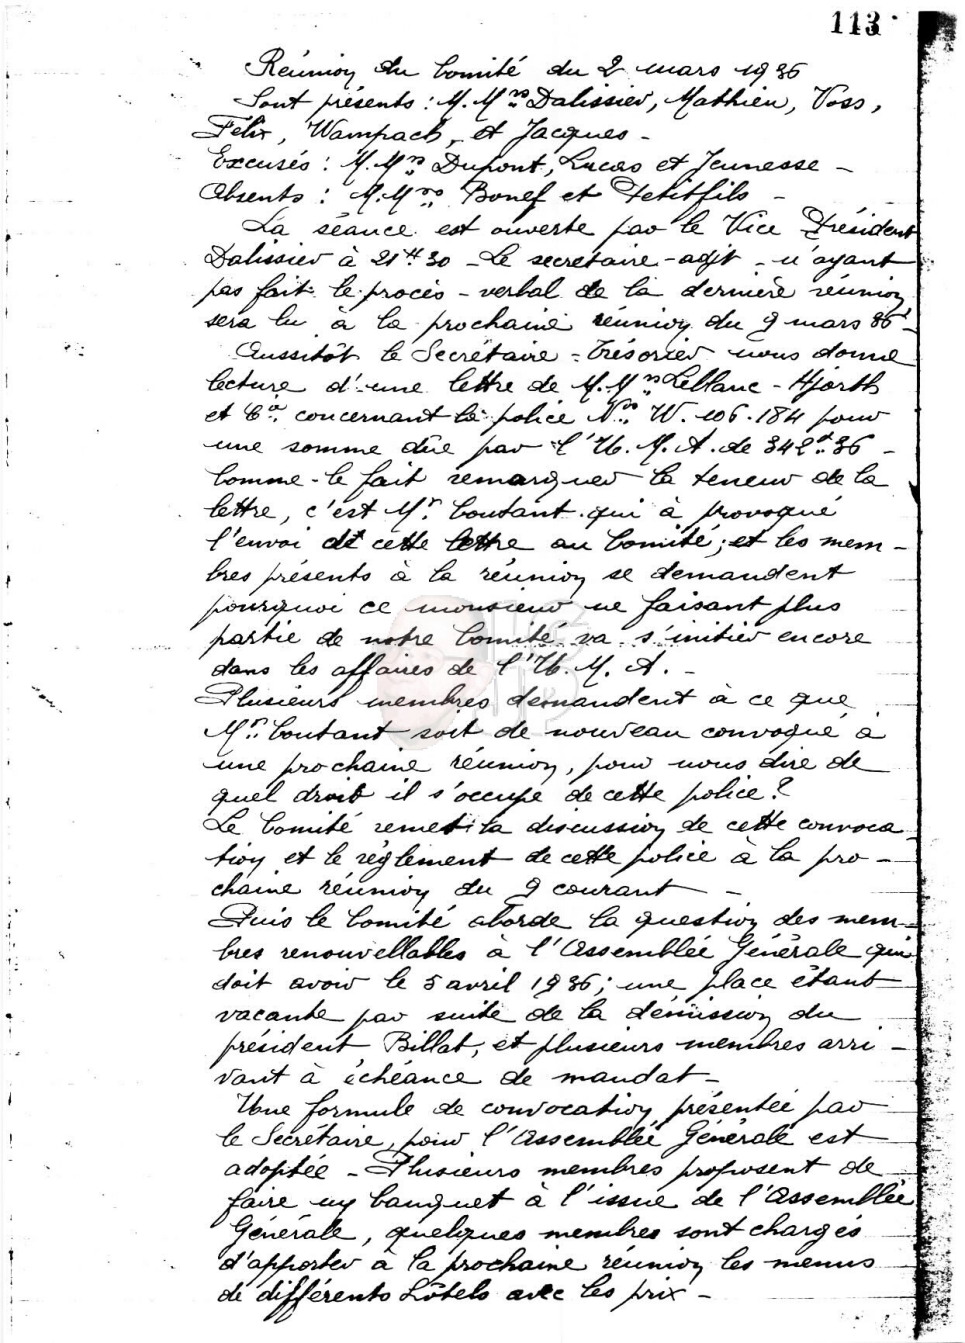 113
Réunion du Comité du 2 mars 1936
Sont présents : M.Mrs Dalissier, Mathieu, Voss,
Félix, Wampach, et Jacques -
Excusés : M.Mrs Dupont, Lucas et Jeunesse -
Absents : M.Mrs Bonef et Petitfils -
La séance est ouverte par le Vice Président
Dalissier à 21H30 - Le secretaire-adjt - n'ayant
pas fait le procès-verbal de la dernière réunion
sera lu à la prochaine réunion du 9 mars 36 -
Aussitôt le Secrétaire-Trésorier nous donne
lecture d'une lettre de M.Mrs Leblanc-Hjorth
et Cie concernant la police No W. 106.184 pour
une somme dûe par l'U.M.A. de 342.36 -
Comme le fait remarquer la teneur de la
lettre, c'est Mr Coutant qui à provoqué
l'envoi de cette lettre au Comité; et les mem-
bres présents à la réunion se demandent
pourquoi ce monsieur ne faisant plus
partie de notre Comité va s'initier encore
dans les affaires de l'U.M.A. -
Plusieurs membres demandent à ce que
Mr Coutant soit de nouveau convoqué à
une prochaine réunion, pour nous dire de
quel droit il s'occupe de cette police?
Le Comité remet la discussion de cette convoca
tion et le règlement de cette police à la pro-
chaine réunion du 9 courant -
Puis le Comité aborde la question des mem-
bres renouvellables à l'Assemblée Générale qui
doit avoir le 5 avril 1936; une place étant
vacante par suite de la démission du
président Billat, et plusieurs membres arri-
vant à échéance de mandat -
Une formule de convocation présentée par
le Secrétaire, pour l'Assemblée Générale est
adoptée - Plusieurs membres proposent de
faire un banquet à l'issue de l'Assemblée
Générale, quelques membres sont chargés
d'apporter à la prochaine réunion les menus
de différents hôtels avec les prix -